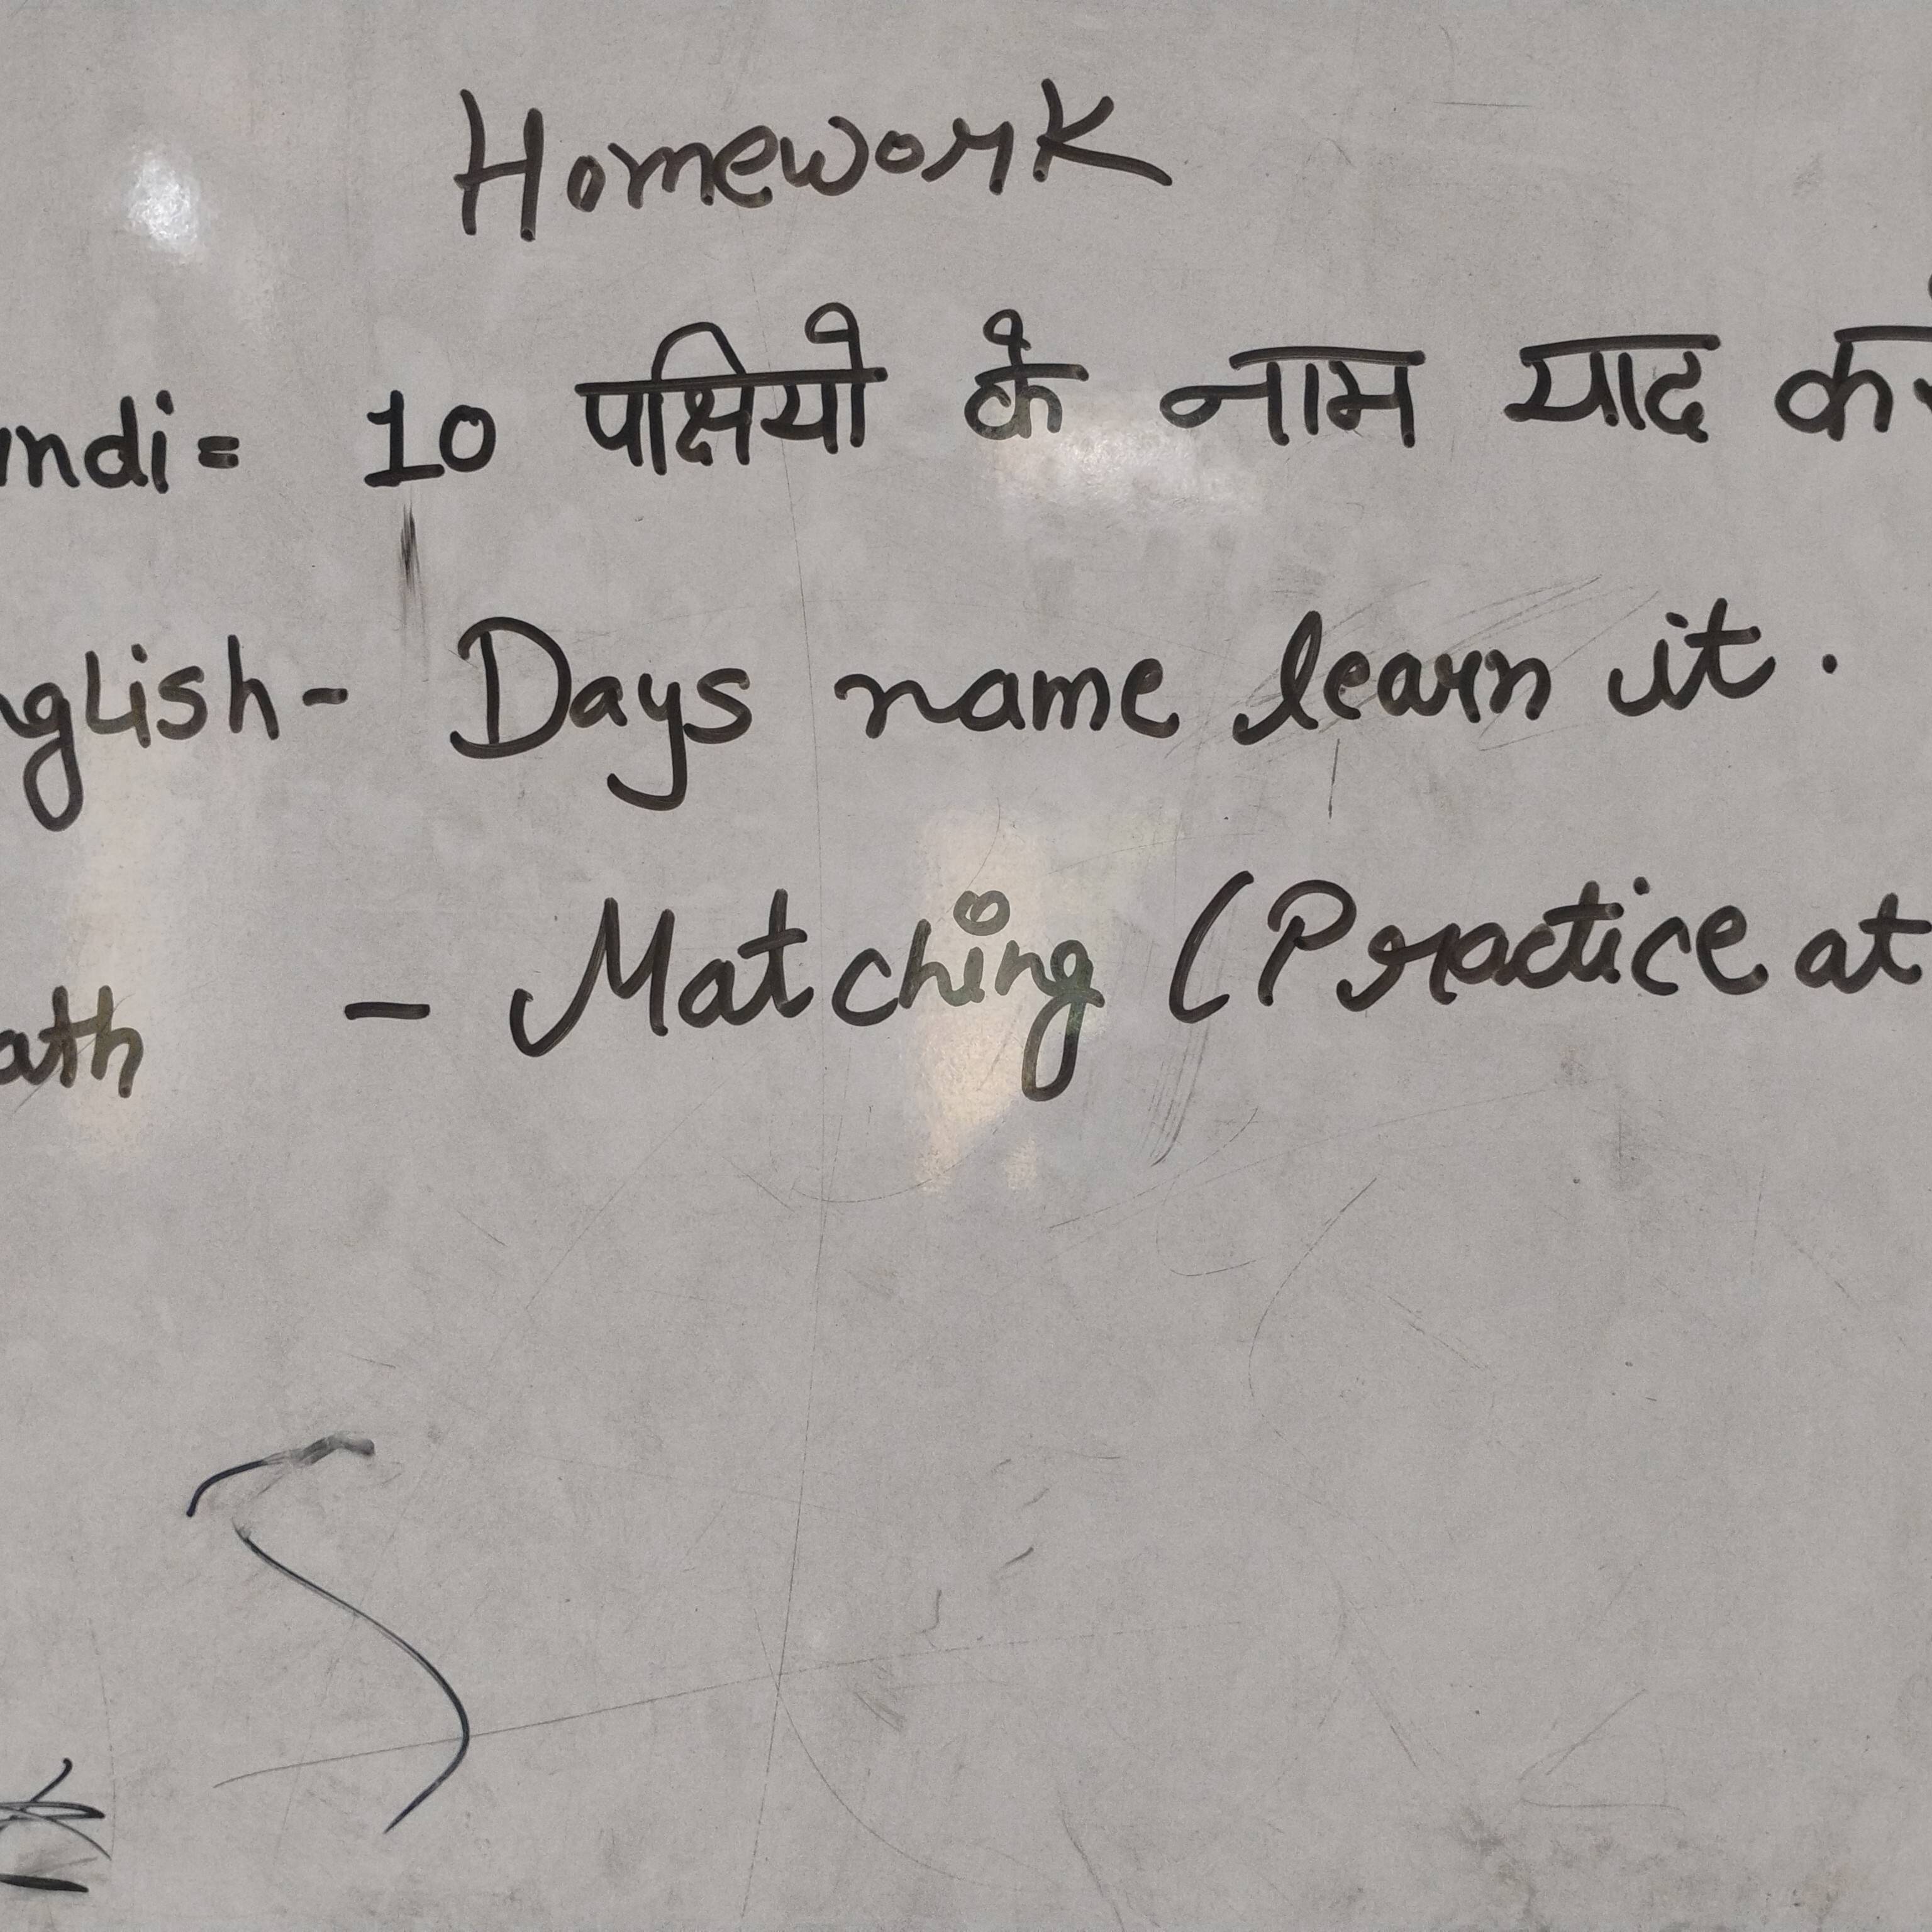 Homework
indi= 10 पक्षियो के नाम याद
nglish- Days name learn it.
ath - Matching (Practice at